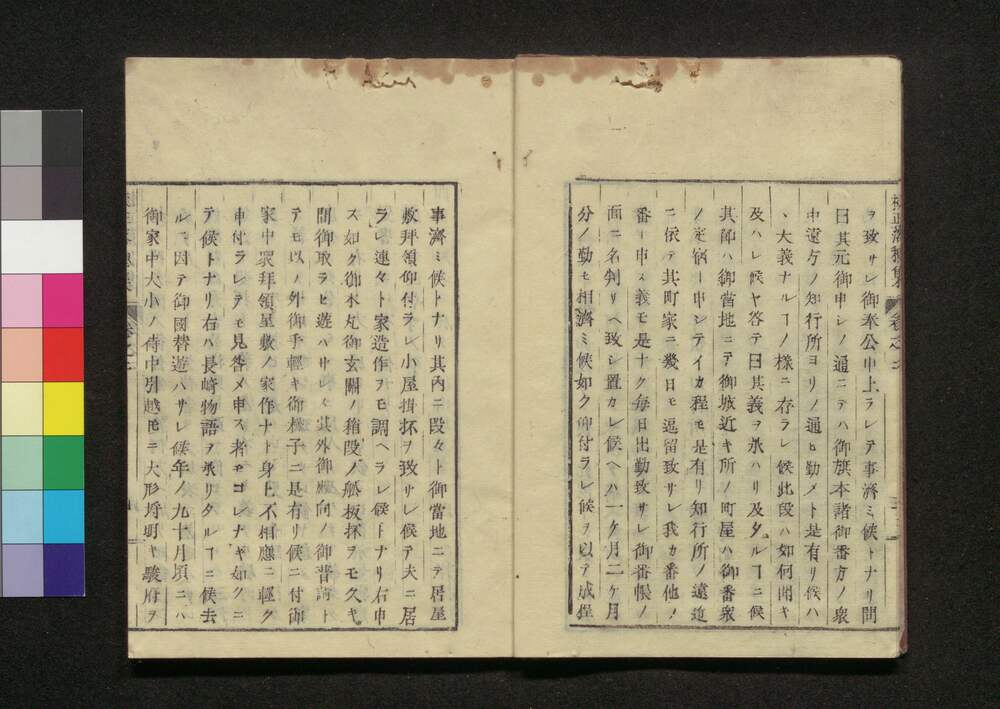 補正落穂集 巻之二
ヲ致サレ御奉公申上ラレテ事濟ミ候トナリ問
曰其元御申シノ通ニテハ御旗本諸御番方ノ衆
中遠方ノ知行所ヨリノ通ヒ勤メト是有リ候ハ
丶大義ナルヿノ様ニ存ラレ候此段ハ如何聞キ
及ハレ候ヤ答テ曰其義ヲ承ハリ及タルヿニ候
其節ハ御當地ニテ御城近キ所ノ町屋ハ御番衆
ノ定宿ト申シテイカ程モ是有リ知行所ノ遠近
ニ依テ其町家ニ幾日モ逗留致サレ我カ番他ノ
番ト申ス義モ是ナク毎日出勤致サレ御番帳ノ
面ニ名判リヘ致シ置カレ候ヘハ一ケ月二ケ月
分ノ勤モ相濟ミ候如ク仰付ラレ候ヲ以テ成程
事濟ミ候トナリ其内ニ段々ト御當地ニテ居屋
敷拜領仰付ラレ小屋掛抔ヲ致サレ候テ夫ニ居
ラレ連々ト家造作ヲモ調ヘラレ候トナリ右申
ス如ク御本丸御玄關ノ箱段ノ舩板抔ヲモ久キ
間御取ラヒ遊ハサレ其外御向ノ御普請ト
テモ以ノ外御手輕キ御様子ニ是有リ候ニ付御
家中衆拜領屋敷ノ家作ナト身上不相應ニ輕ク
申付ラレテモ見咎メ申ス者モコレナキ如クニ
テ候トナリ右ハ長崎物語ヲ承リタルヿニ候去
ルニ因テ御國替遊ハサレ候年ノ九十月頃ニハ
御家中大小ノ侍中引越𪜈ニ大形埒明キ駿府ヲ